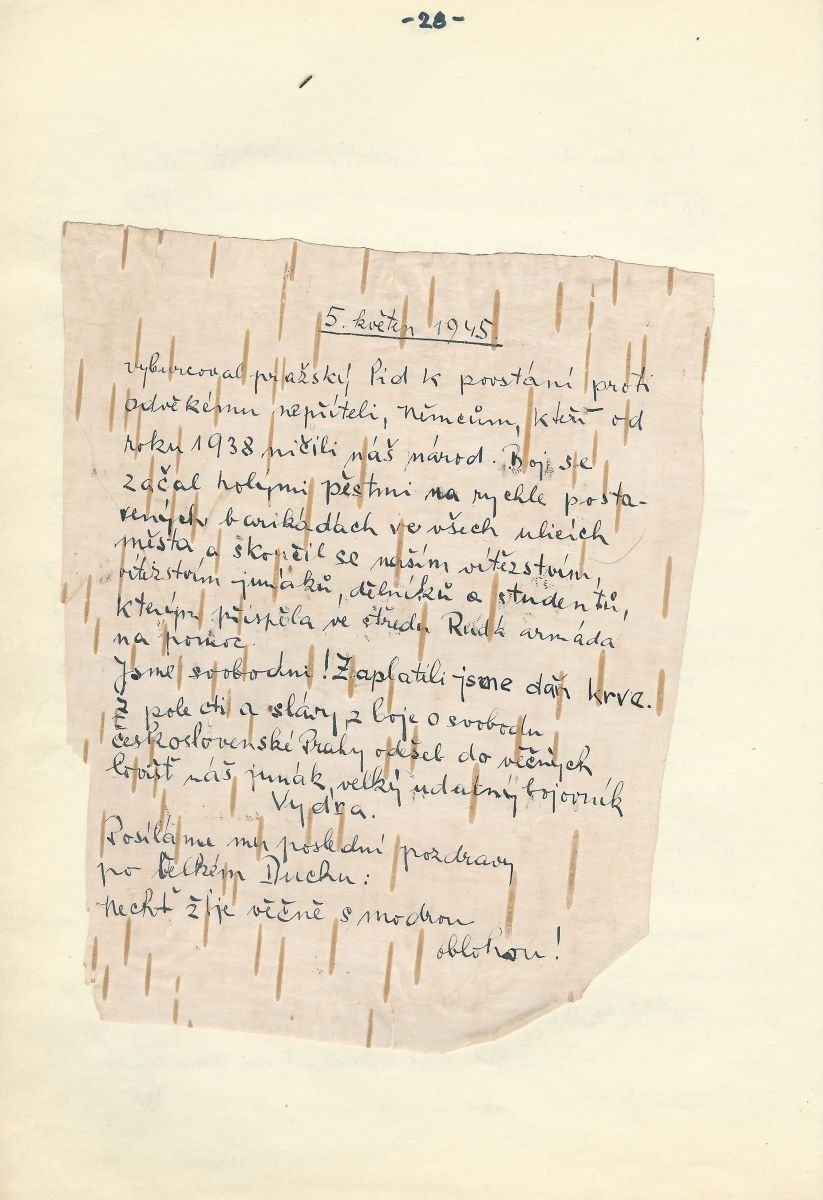 -28-
5. květen 1945
vyburcoval pražský lid k povstání proti
odvěkému nepříteli, Němcům, kteří od
roku 1938 ničili náš národ. Boj se
začal holými pěstmi na rychle posta-
vených barikádách ve všech ulicích
města a skončil se naším vítězstvím,
vítězstvím junáků, dělníků a studentů,
kterým přispěla ve středu Rudá armáda
na pomoc.
Jsme svobodni! Zaplatili jsme daň krve.
Z pole cti a slávy, z boje o svobodu
československé Prahy odešel do věčných
lovišť náš junák, velký udatný bojovník
Vydra.
Posíláme mu poslední pozdravy
po Velkém Duchu:
Nechť žije věčně s modrou
oblohou!